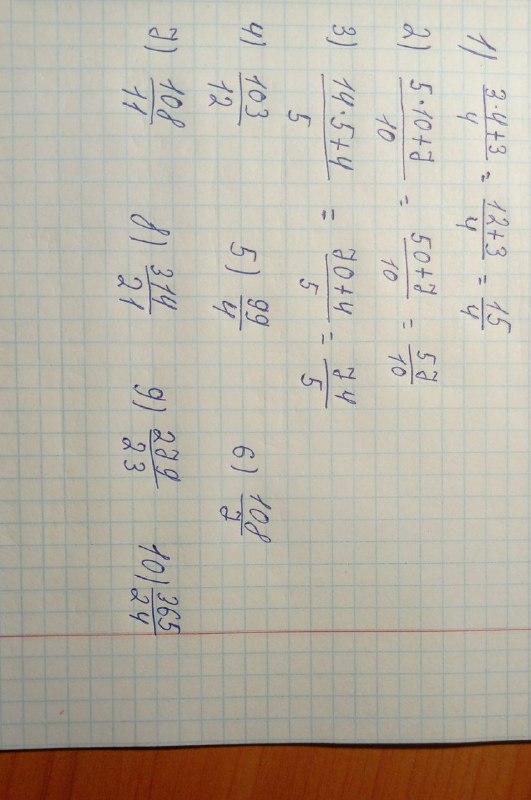 1) (3·4+3)/4 = (12+3)/4 = 15/4
2) (5·10+7)/10 = (50+7)/10 = 57/10
3) (14·5+4)/5 = (70+4)/5 = 74/5
4) 103/12 5) 99/4 6) 108/7
7) 108/11 8) 314/21 9) 279/23 10) 365/24